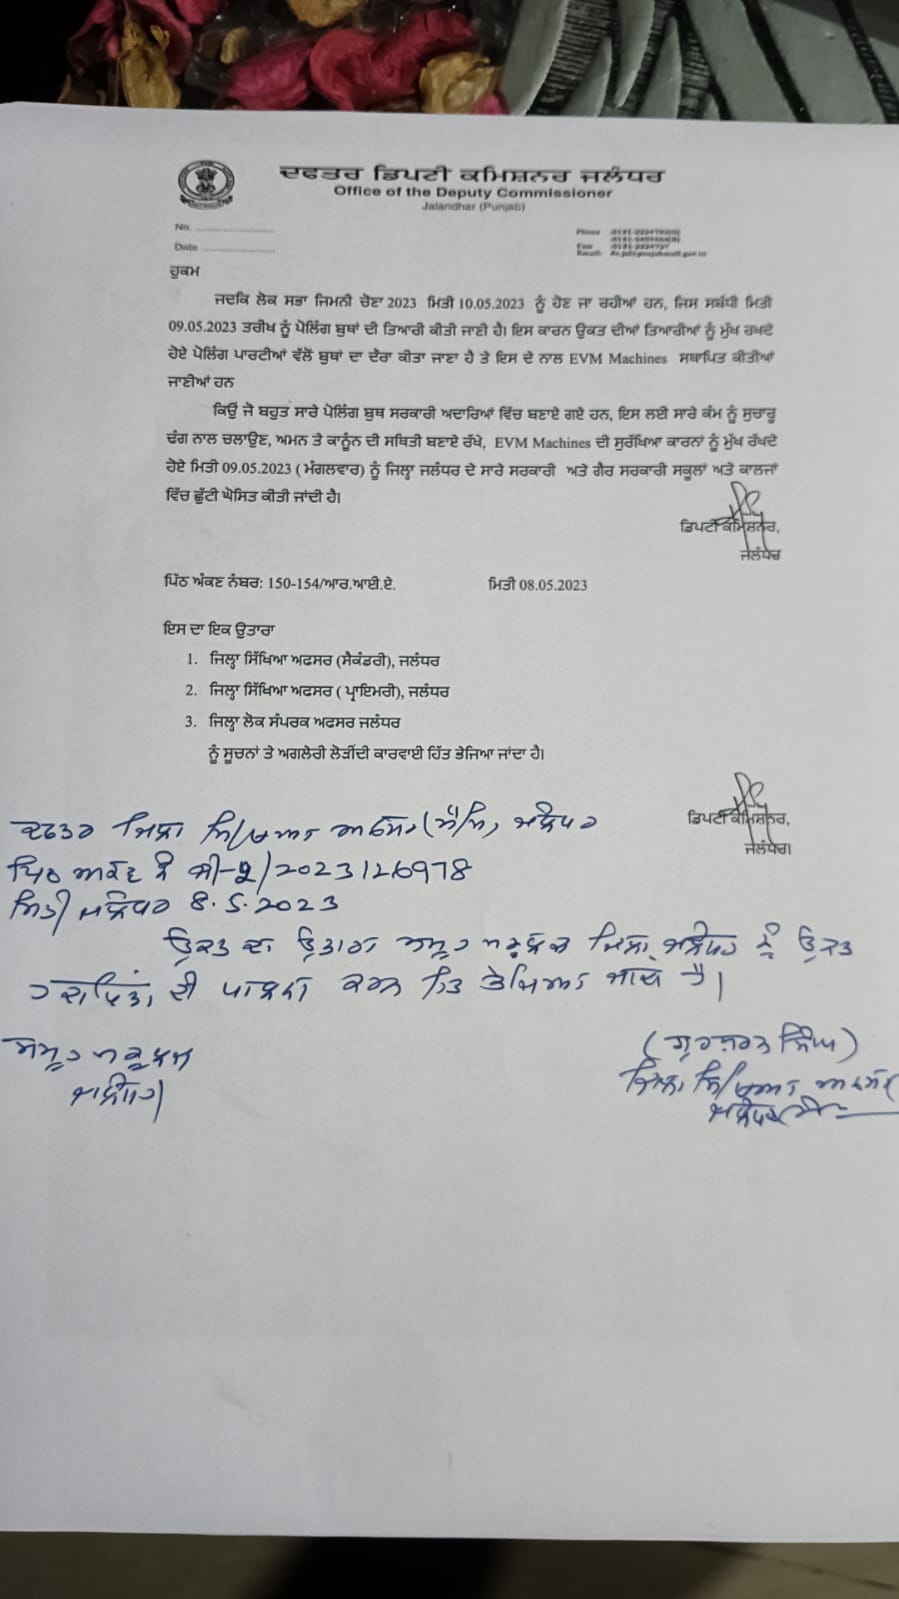 ਦਫਤਰ ਡਿਪਟੀ ਕਮਿਸ਼ਨਰ ਜਲੰਧਰ
Office of the Deputy Commissioner
Jalandhar (Punjab)
No. ....................
Date ....................
Phone
Fax
Email:
ਹੁਕਮ
ਜਦਕਿ ਲੋਕ ਸਭਾ ਜਿਮਨੀ ਚੋਣਾ 2023 ਮਿਤੀ 10.05.2023 ਨੂੰ ਹੋਣ ਜਾ ਰਹੀਆਂ ਹਨ, ਜਿਸ ਸਬੰਧੀ ਮਿਤੀ
09.05.2023 ਤਰੀਖ ਨੂੰ ਪੋਲਿੰਗ ਬੂਥਾਂ ਦੀ ਤਿਆਰੀ ਕੀਤੀ ਜਾਣੀ ਹੈ। ਇਸ ਕਾਰਨ ਉਕਤ ਦੀਆਂ ਤਿਆਰੀਆਂ ਨੂੰ ਮੁੱਖ ਰਖਦੇ
ਹੋਏ ਪੋਲਿੰਗ ਪਾਰਟੀਆਂ ਵੱਲੋਂ ਬੂਥਾਂ ਦਾ ਦੌਰਾ ਕੀਤਾ ਜਾਣਾ ਹੈ ਤੇ ਇਸ ਦੇ ਨਾਲ EVM Machines ਸਥਾਪਿਤ ਕੀਤੀਆਂ
ਜਾਣੀਆਂ ਹਨ
ਕਿਉਂ ਜੋ ਬਹੁਤ ਸਾਰੇ ਪੋਲਿੰਗ ਬੂਥ ਸਰਕਾਰੀ ਅਦਾਰਿਆਂ ਵਿੱਚ ਬਣਾਏ ਗਏ ਹਨ, ਇਸ ਲਈ ਸਾਰੇ ਕੰਮ ਨੂੰ ਸੁਚਾਰੂ
ਢੰਗ ਨਾਲ ਚਲਾਉਣ, ਅਮਨ ਤੇ ਕਾਨੂੰਨ ਦੀ ਸਥਿਤੀ ਬਣਾਏ ਰੱਖੇ, EVM Machines ਦੀ ਸੁਰੱਖਿਆ ਕਾਰਨਾਂ ਨੂੰ ਮੁੱਖ ਰੱਖਦੇ
ਹੋਏ ਮਿਤੀ 09.05.2023 ( ਮੰਗਲਵਾਰ) ਨੂੰ ਜਿਲ੍ਹਾ ਜਲੰਧਰ ਦੇ ਸਾਰੇ ਸਰਕਾਰੀ ਅਤੇ ਗੈਰ ਸਰਕਾਰੀ ਸਕੂਲਾਂ ਅਤੇ ਕਾਲਜਾਂ
ਵਿੱਚ ਛੁੱਟੀ ਘੋਸਿਤ ਕੀਤੀ ਜਾਂਦੀ ਹੈ।
ਡਿਪਟੀ ਕਮਿਸ਼ਨਰ,
ਜਲੰਧਰ
ਪਿੱਠ ਅੰਕਣ ਨੰਬਰ: 150-154/ਆਰ.ਆਈ.ਏ. ਮਿਤੀ 08.05.2023
ਇਸ ਦਾ ਇਕ ਉਤਾਰਾ
1. ਜਿਲ੍ਹਾ ਸਿੱਖਿਆ ਅਫਸਰ (ਸੈਕੰਡਰੀ), ਜਲੰਧਰ
2. ਜਿਲ੍ਹਾ ਸਿੱਖਿਆ ਅਫਸਰ ( ਪ੍ਰਾਇਮਰੀ), ਜਲੰਧਰ
3. ਜਿਲ੍ਹਾ ਲੋਕ ਸੰਪਰਕ ਅਫਸਰ ਜਲੰਧਰ
ਨੂੰ ਸੂਚਨਾਂ ਤੇ ਅਗਲੇਰੀ ਲੋੜੀਂਦੀ ਕਾਰਵਾਈ ਹਿੱਤ ਭੇਜਿਆ ਜਾਂਦਾ ਹੈ।
ਡਿਪਟੀ ਕਮਿਸ਼ਨਰ,
ਜਲੰਧਰ।
ਦਫਤਰ ਜਿਲਾ ਸਿੱਖਿਆ ਅਫਸਰ (ਸੈ.ਸਿ) ਜਲੰਧਰ
ਪਿੱਠ ਅੰਕਣ ਨੰ 2023126978
ਮਿਤੀ ਜਲੰਧਰ 8.5.2023
ਉਕਤ ਦਾ ਉਤਾਰਾ ਸਮੂਹ ਸਕੂਲ ਜਿਲਾ ਜਲੰਧਰ ਨੂੰ ਉਕਤ
ਦੀ ਪਾਲਣਾ ਕਰਨ ਹਿਤ ਭੇਜਿਆ ਜਾਂਦਾ ਹੈ।
ਸਮੂਹ ਸਕੂਲ
ਜਲੰਧਰ।
(ਗੁਰਸ਼ਰਨ ਸਿੰਘ)
ਜਿਲਾ ਸਿੱਖਿਆ ਅਫਸਰ
ਜਲੰਧਰ